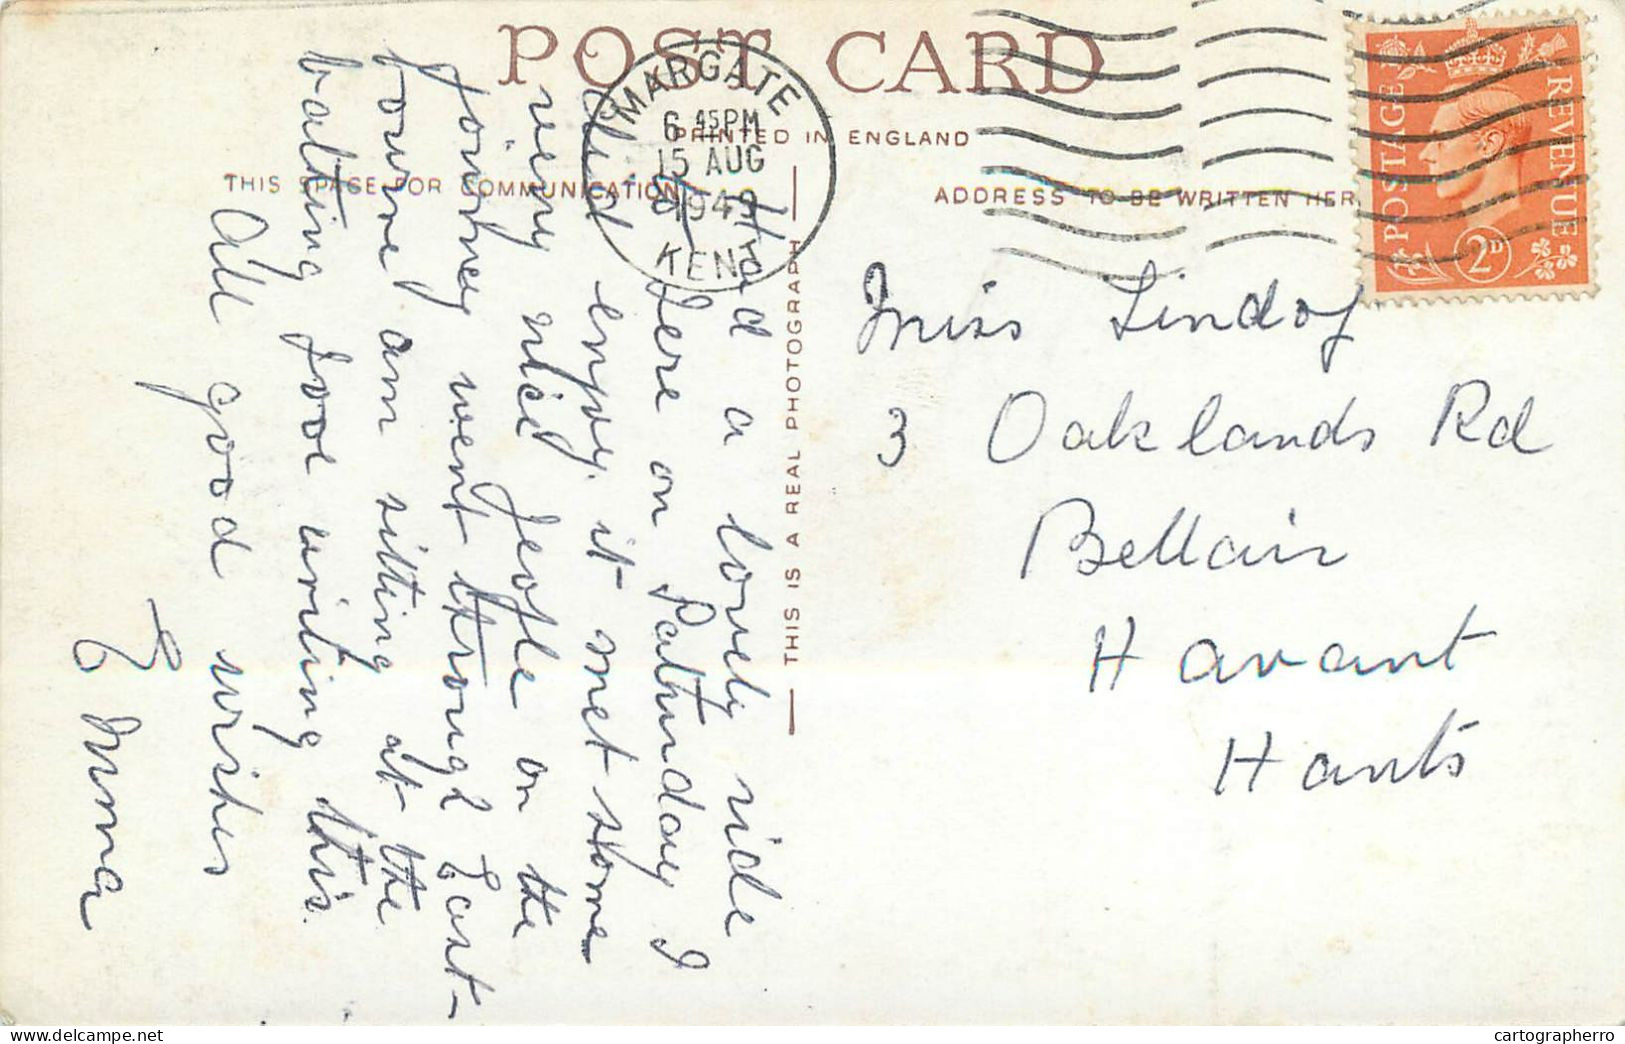 POST CARD
PRINTED IN ENGLAND
THIS SPACE FOR COMMUNICATION
ADDRESS TO BE WRITTEN HER
THIS IS A REAL PHOTOGRAPH
MARGATE
6 45PM
15 AUG
1949
KENT
POSTAGE REVENUE
2D
Had a lovely ride
Here on Saturday I
did enjoy it met some
very nice people on the
jorney went through East-
bowne am sitting at the
bathing pool writing this.
All good wishes
E Mma
Miss Lindoy
3 Oaklands Rd
Bellair
Havant
Hants
cartographerro